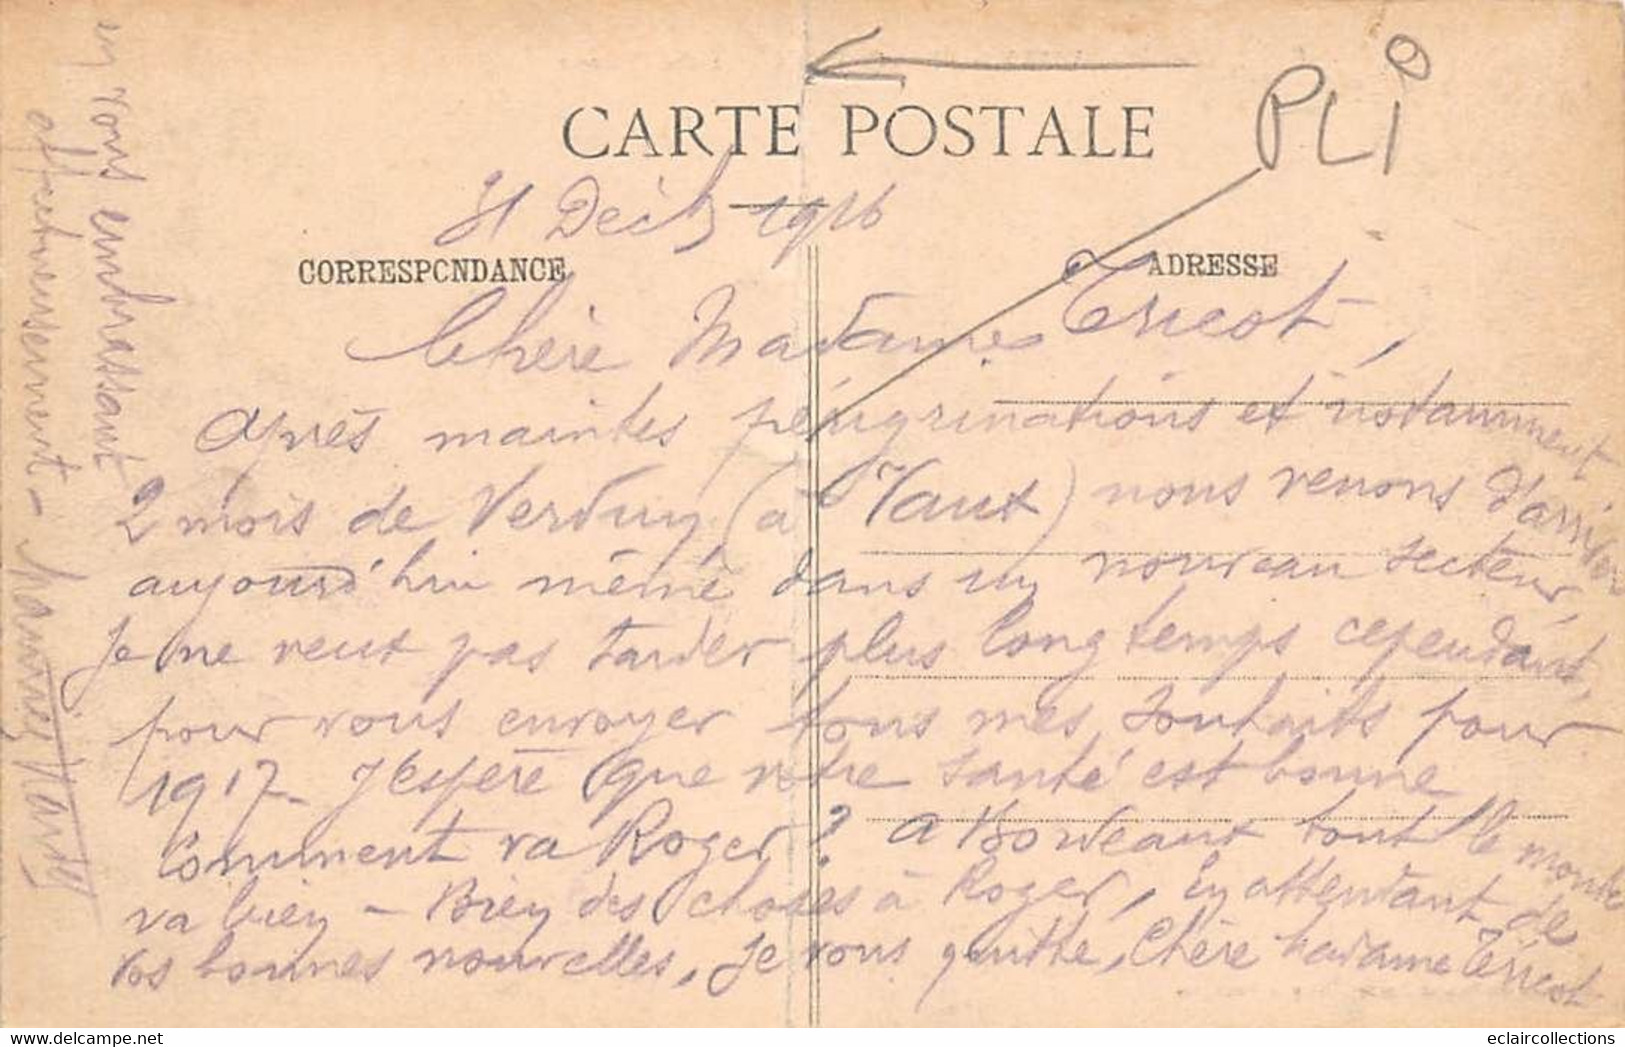 PLI
CARTE POSTALE
31 Décb 1916
CORRESPONDANCE
ADRESSE
Chère Madame Tricot,
Après maintes pérégrinations et notamment
2 mois de Verdun (à Vaux) nous venons d'arriver
aujourd'hui même dans un nouveau secteur,
Je ne veux pas tarder plus longtemps cependant,
pour vous envoyer tous mes souhaits pour
1917. J'espère que votre santé est bonne
Comment va Roger? A Bordeaux tout le monde
va bien – Bien des choses à Roger, En attendant de
vos bonnes nouvelles, je vous quitte, Chère Madame Tricot
en vous embrassant
affectueusement –
eclaircollections